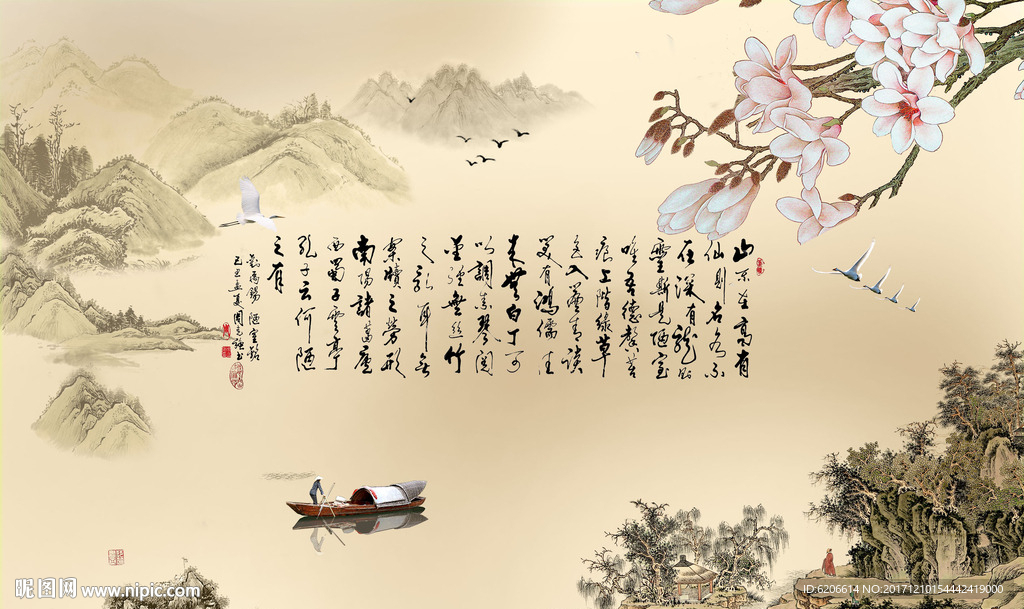 山不在高有
仙則名水不
在深有龍則
靈斯是陋室
唯吾德馨苔
痕上階綠草
色入簾青談
笑有鴻儒往
來無白丁可
以調素琴閱
金經無絲竹
之亂耳無
案牘之勞形
南陽諸葛廬
西蜀子雲亭
孔子云何陋
之有
劉禹錫 陋室銘
昵图网 www.nipic.com
ID:6206614 NO.20171210154442419000